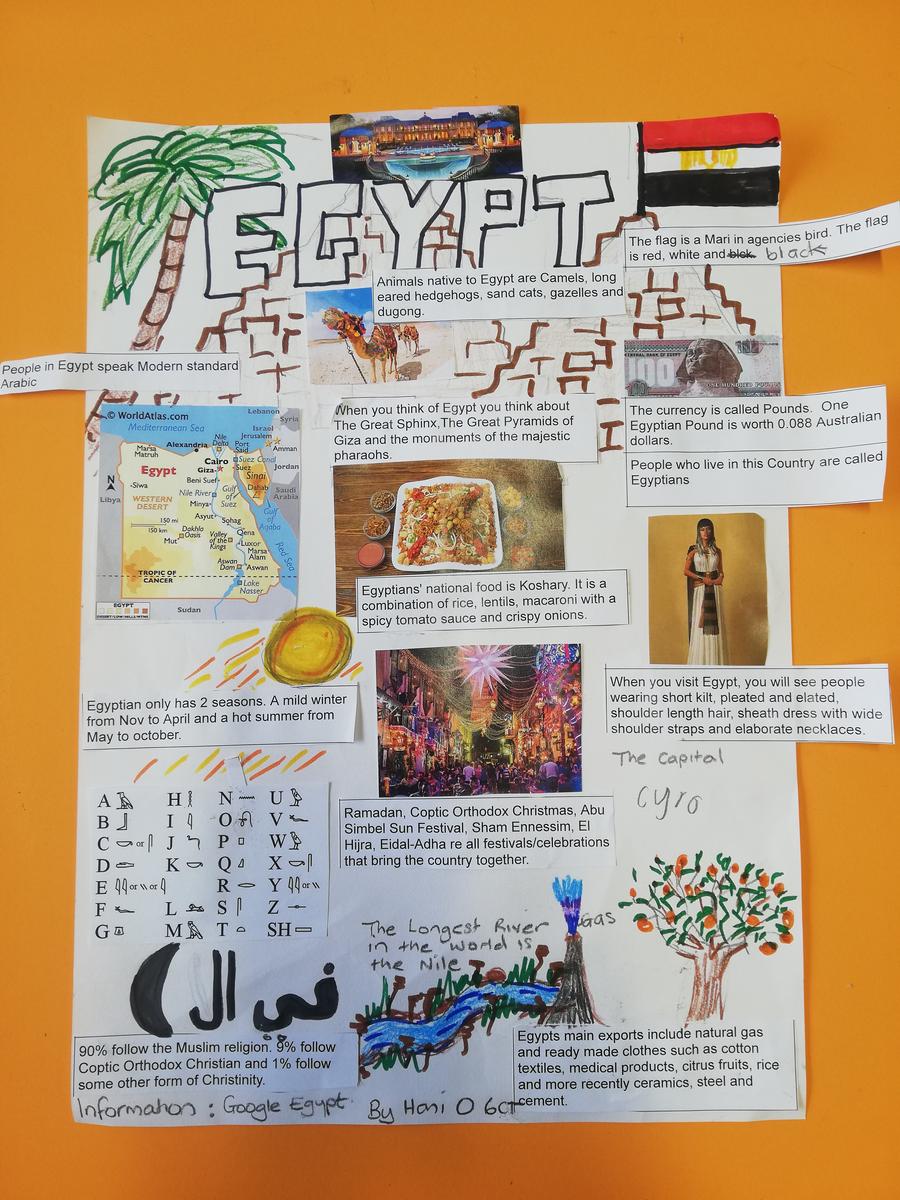 EGYPT
The flag is a Mari in agencies bird. The flag
is red, white and blck. black
Animals native to Egypt are Camels, long
eared hedgehogs, sand cats, gazelles and
dugong.
People in Egypt speak Modern standard
Arabic
CENTRAL BANK OF EGYPT
100
100
ONE HUNDRED POUNDS
© WorldAtlas.com
Mediterranean Sea
Lebanon
Syria
Israel
Jerusalem
Amman
Nile
Delta
Port
Said
Alexandria
Marsa
Matruh
Suez Canal
Cairo
Suez
Jordan
Giza
Egypt
Sinai
Beni Suef
Dahab
N
Siwa
Nile River
Gulf
of
Suez
Saudi
Arabia
Libya
WESTERN
DESERT
Minya
Gulf
of
Aqaba
Asyut
150 mi
150 km
Sohag
Dakhla
Oasis
Qena
Mut
Valley
of the
Kings
Luxor
Marsa
Alam
Red Sea
Aswan
Dam
Aswan
TROPIC OF
CANCER
Lake
Nasser
EGYPT
Sudan
When you think of Egypt you think about
The Great Sphinx,The Great Pyramids of
Giza and the monuments of the majestic
pharaohs.
The currency is called Pounds. One
Egyptian Pound is worth 0.088 Australian
dollars.
People who live in this Country are called
Egyptians
Egyptians' national food is Koshary. It is a
combination of rice, lentils, macaroni with a
spicy tomato sauce and crispy onions.
Egyptian only has 2 seasons. A mild winter
from Nov to April and a hot summer from
May to october.
When you visit Egypt, you will see people
wearing short kilt, pleated and elated,
shoulder length hair, sheath dress with wide
shoulder straps and elaborate necklaces.
The capital
Cyro
Ramadan, Coptic Orthodox Christmas, Abu
Simbel Sun Festival, Sham Ennessim, El
Hijra, Eidal-Adha re all festivals/celebrations
that bring the country together.
A H N U
B I O V
C or J P W
D K Q X
E or or R Y or
F L S Z
G M T SH
The Longest River
in the world is
the Nile
Gas
في ال
90% follow the Muslim religion. 9% follow
Coptic Orthodox Christian and 1% follow
some other form of Christinity.
Egypts main exports include natural gas
and ready made clothes such as cotton
textiles, medical products, citrus fruits, rice
and more recently ceramics, steel and
cement.
Information : Google Egypt. By Hani O 6CT